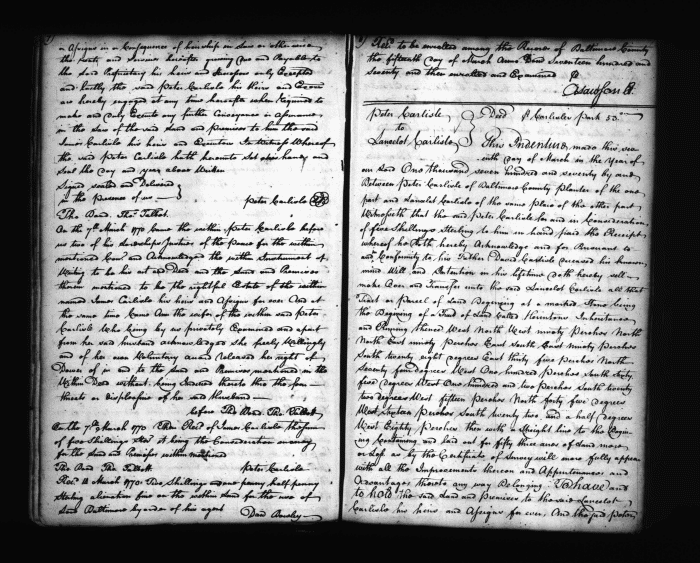 or Assigns in Consequence of his ship in Law or other wise
the Rents and Services hereafter growing due and Payable to
the said Proprietary his heirs and Successors only Excepted
and Lastly the said Peter Carlisle his Heirs and Exors
are hereby engaged at any time hereafter when Required to
make and duly Execute any further Conveyance or Assurance
in the Law of the said Land and premises to him the said
James Carlisle his heirs and Executors In Witness Whereof
the said Peter Carlisle hath hereunto Set his hand and
seal the day and year above Written
Signed sealed and Delivered
in the presence of us
Peter Carlisle
Thos Bond. Thos Talbot
On the 7th March 1770 Came the within Peter Carlisle before
us two of his Lordships Justices of the Peace for the within
mentioned County and Acknowledged the within Instrument of
Writing to be his act and Deed and the Land and Premises
therein mentioned to be the rightfull Estate of the within
named James Carlisle his heirs and Assigns for ever And at
the same time Came the wife of the within said Peter
Carlisle Who being by us privately Examined and apart
from her said husband acknowledges she freely Willingly
and of her own Voluntary accord Released her right of
Dower of in and to the Land and Premises mentioned in the
Within Deed without being Induced thereto thro the
threats or displeasure of her said Husband
before Thos Bond. Thos Talbott
On the 7th March 1770 Then Recd of James Carlisle the sum
of five Shillings Ster it being the Consideration money
for the Land and Premises within mentioned
Thos Bond Thos Talbott Peter Carlisle
Recd March 1770 Two Shillings and one penny half penny
Sterling alienation fine on the within Land for the use of
Lord Baltimore by order of his agent Danl Barclay
to be enrolled among the Records of Baltimore County
the fifteenth Day of March Anno Dom Seventeen hundred and
Seventy and then enrolled and Examined
A Lawson Clk
Peter Carlisle Deed Carlisles Park 53a
to
Lancelot Carlisle This Indenture, made this seventh
Day of March in the Year of
our Lord One thousand seven hundred and seventy by and
Between Peter Carlisle of Baltimore County Planter of the one
part and Lancelot Carlisle of the same place of the other part
Witnesseth that the said Peter Carlisle for and in Consideration
of five Shillings Sterling to him in hand paid the Receipt
whereof he doth hereby Acknowledge and for Pursuant to
and Conformity to his Father David Carlisle deceased his known
mind Will and Intention in his lifetime doth hereby sell
make Over and Transfer unto the said Lancelot Carlisle all that
Tract or parcel of Land Beginning at a marked Stone being
the Beginning of a Tract of Land Called Inheritance
and Running thence West North West ninety Perches North
North East ninety Perches East South East ninety Perches
South twenty eight degrees East thirty five Perches North
Seventy four degrees West One hundred perches South sixty
five degrees West One hundred and two perches South twenty
two degrees West fifteen perches North forty five degrees
West Sixteen perches South twenty two and a half degrees
West Eighty perches then with a Straight line to the Beginning
Containing and laid out for fifty three acres of Land more
or Less as by the Certificate of Survey will more fully appear
with all the Improvements thereon and Appurtenances and
Advantages thereto any way Belonging To have and
to hold the said Land and Premises to the said Lancelot
Carlisle his heirs and Assigns for ever And the said Peter